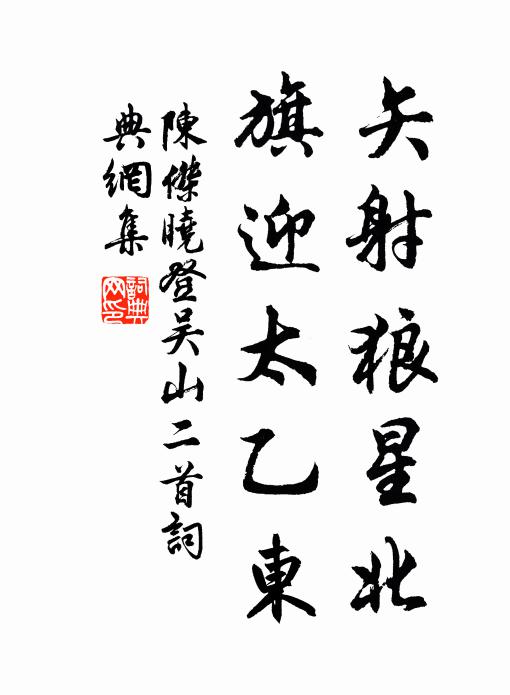 矢射狼星北
旗迎太乙東
陳傑曉登吴山二首詞
典網集
詞典
网印